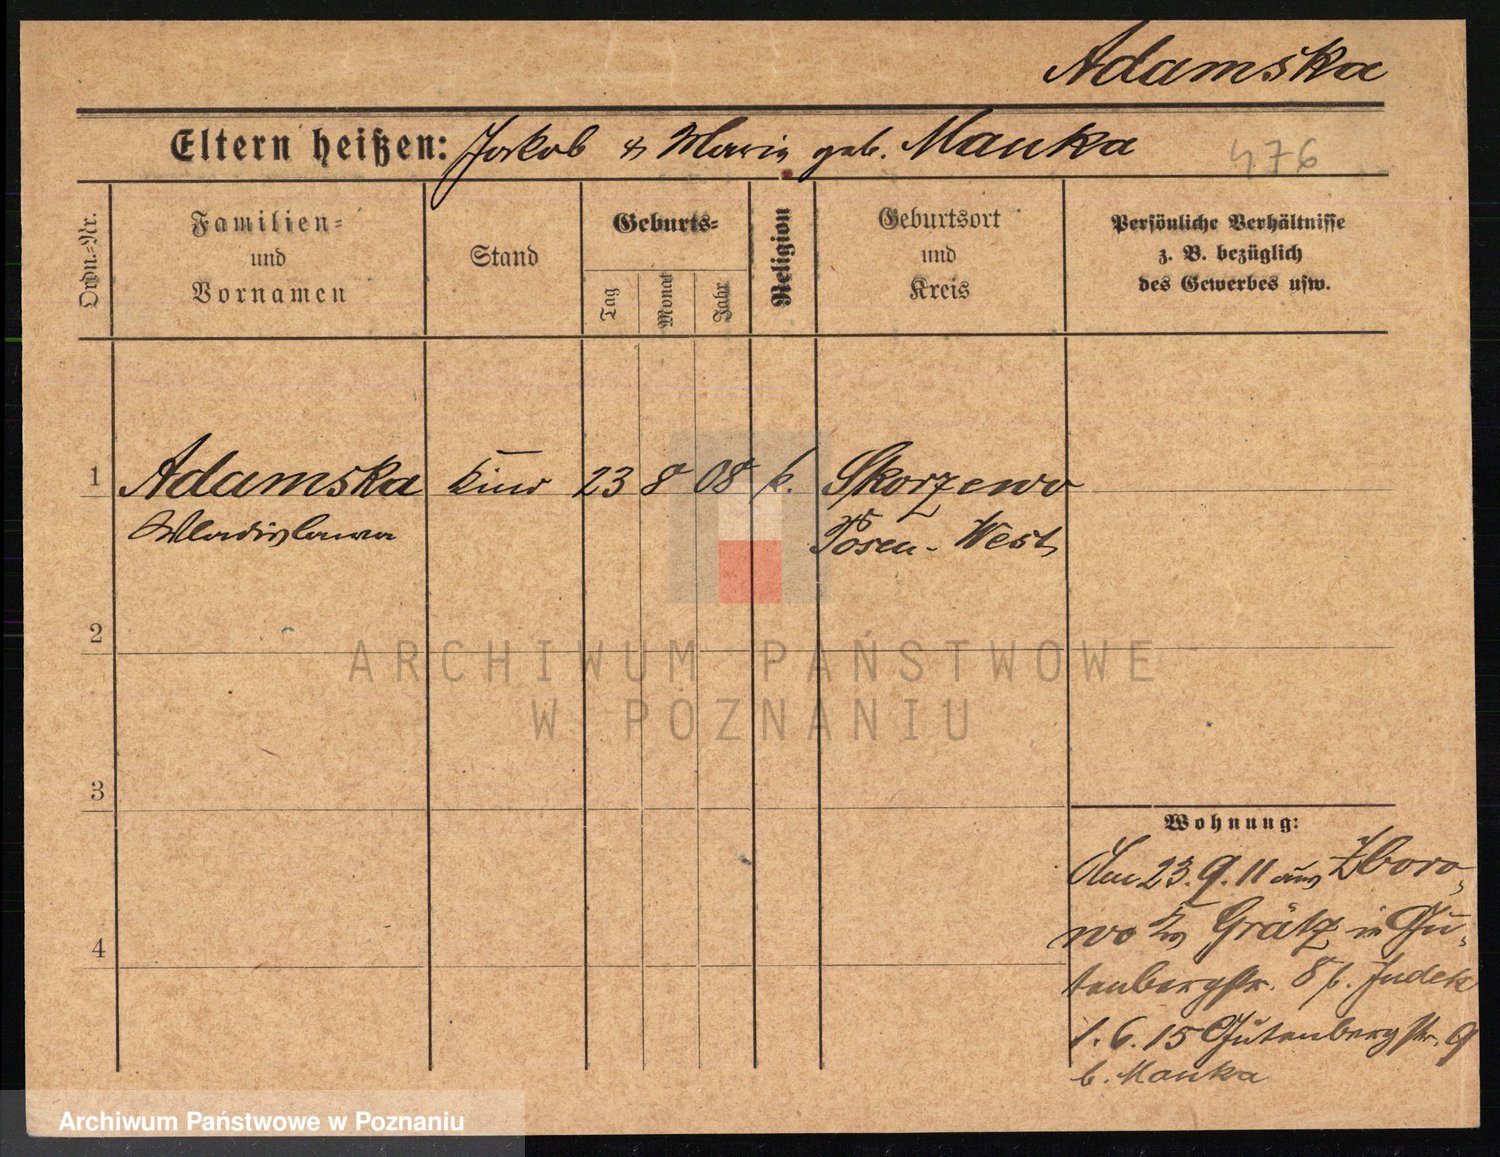 Adamska
Eltern heißen: Jakob & Maria geb. Manka
476
Ordn.-Nr.
Familien-
und
Vornamen
Stand
Geburts-
Tag
Monat
Jahr
Religion
Geburtsort
und
Kreis
Persönliche Verhältnisse
z. B. bezüglich
des Gewerbes usw.
1 Adamska Kind 23 8 08 k. Skorzewo
Wladislawa Posen-West
2
ARCHIWUM PAŃSTWOWE
W POZNANIU
3
Wohnung:
Am 23.9.11 aus Zboro-
wo Krs Grätz in Gu-
4
tenbergstr. 8 b. Judek
1.6.15 Gutenbergstr. 9
b. Manka
Archiwum Państwowe w Poznaniu